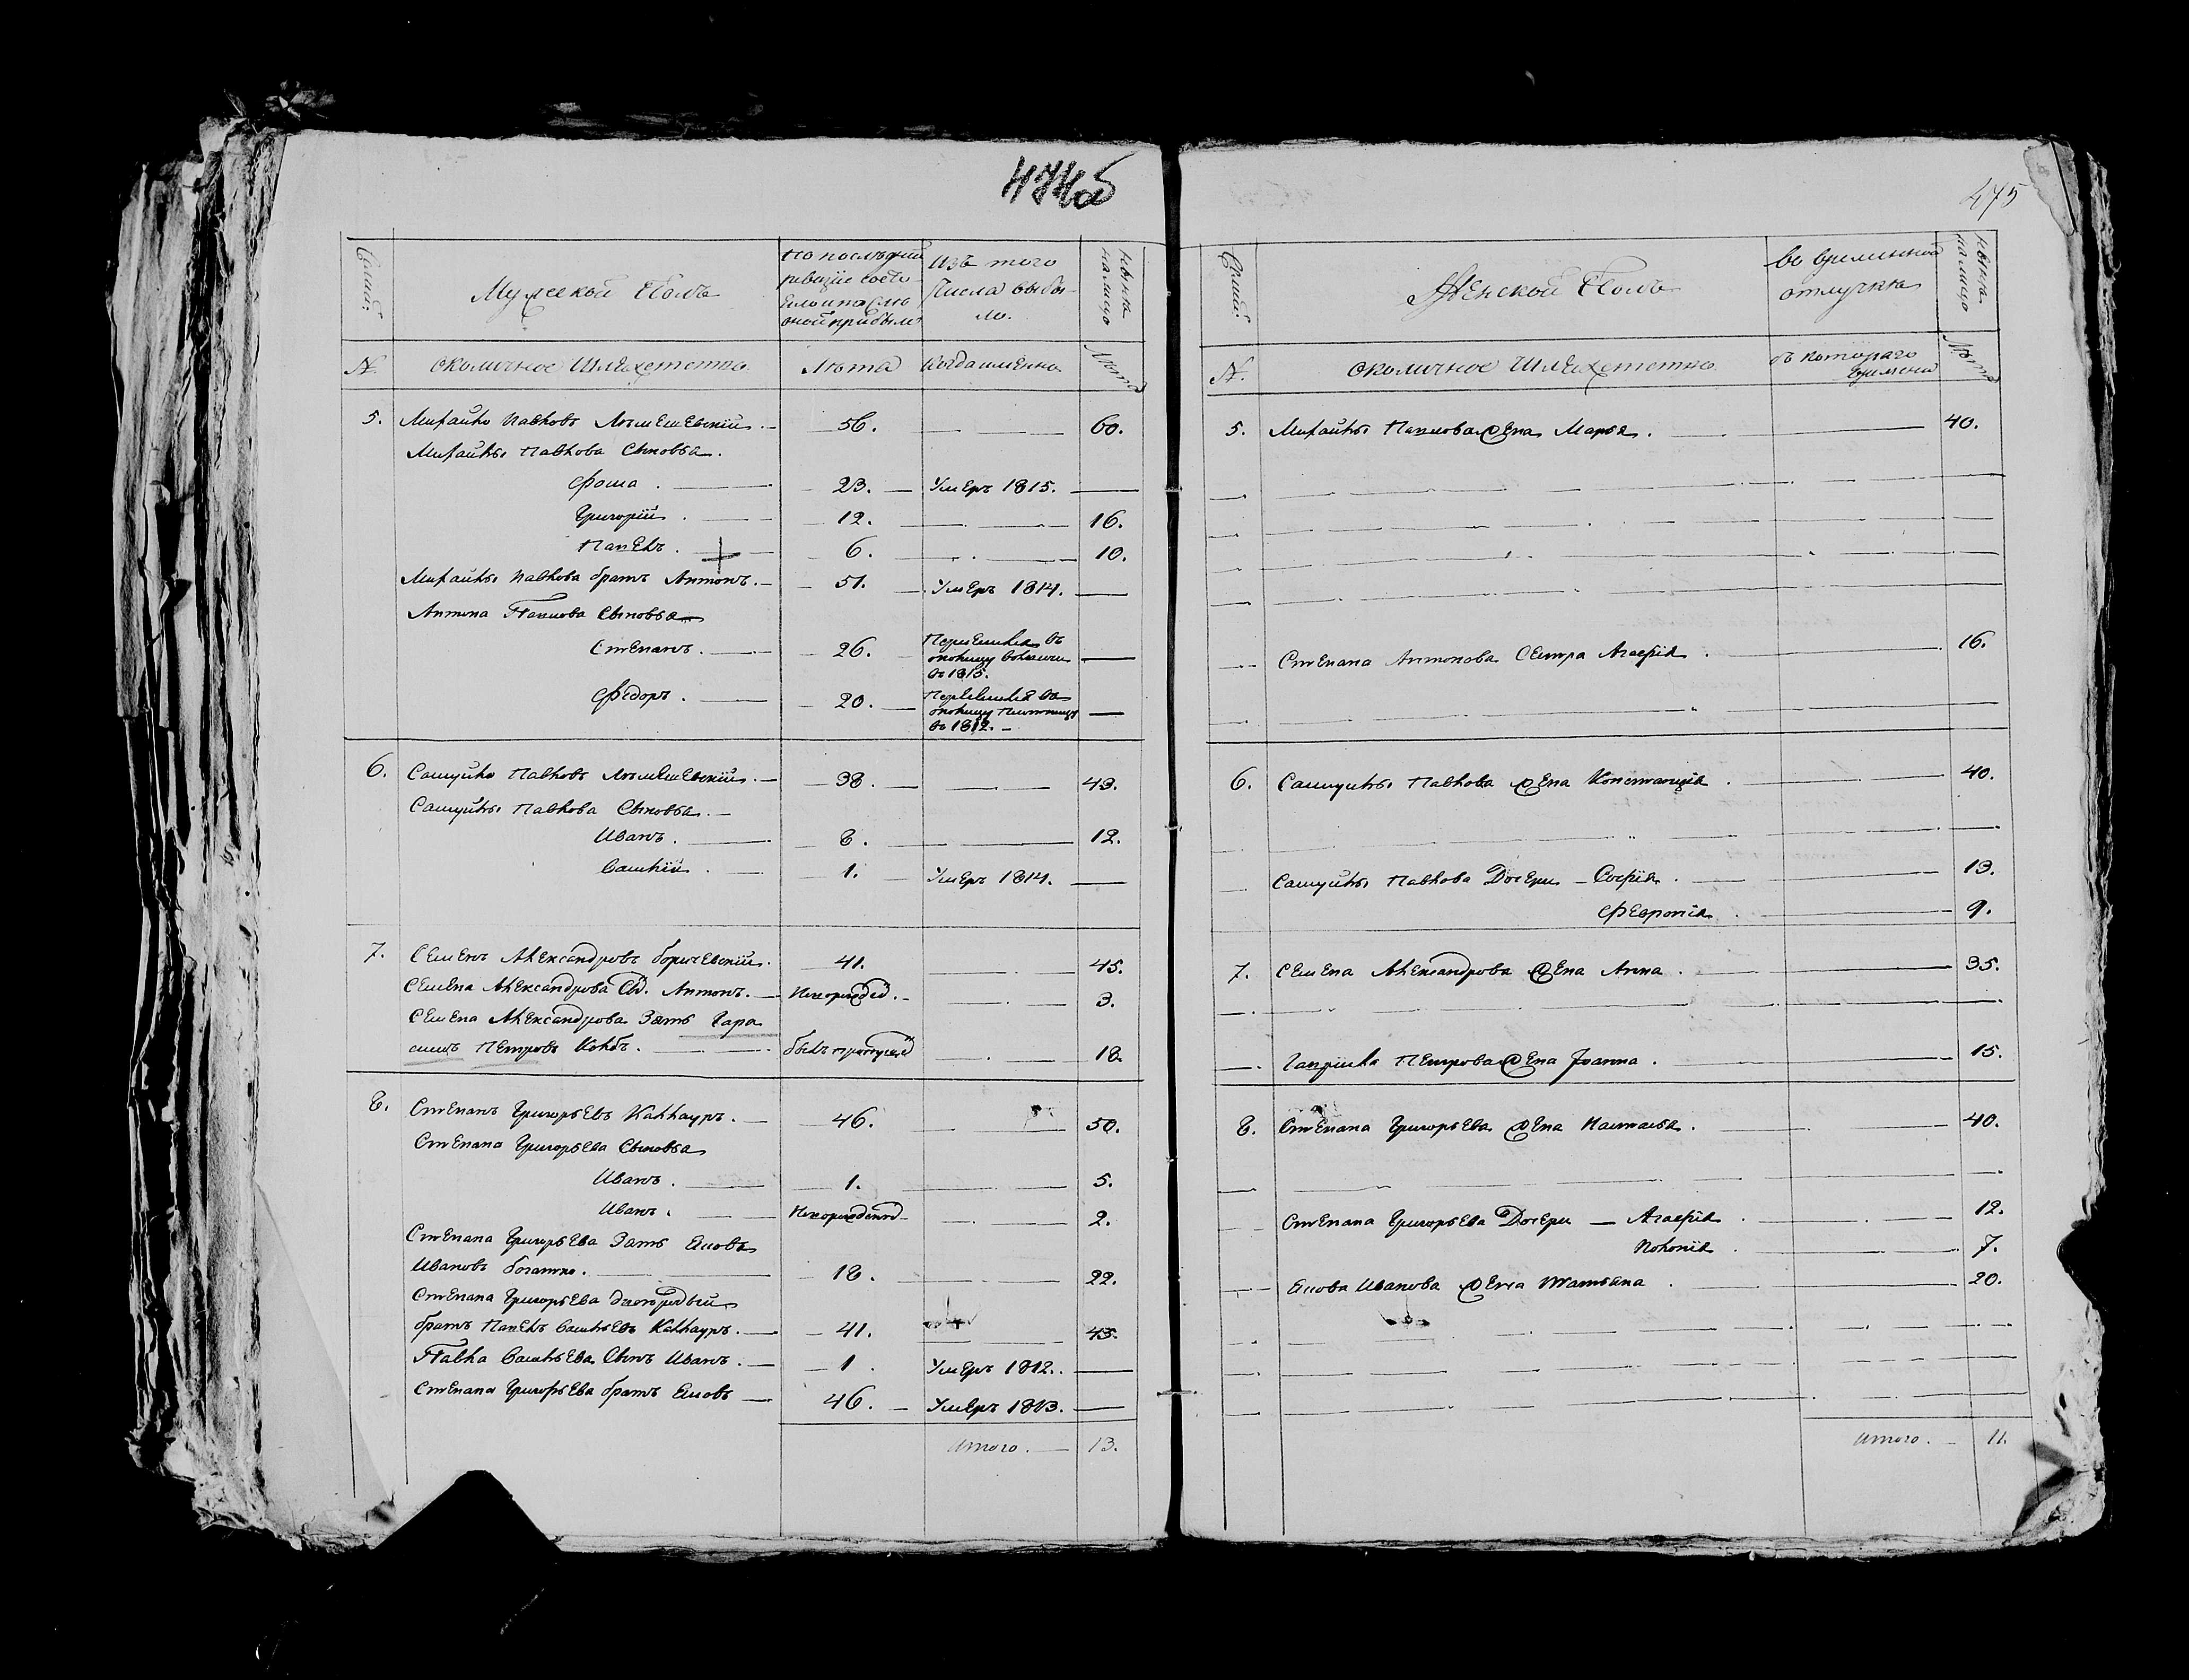 474об
Семьи
Мужеской Полъ
По последней
ревизiи состо
яло и после
оной прибыло
Изъ того
Числа выбы-
ло.
Ныне
на лицо
№.
околичное Шляхетство
Лѣта
Когда именно
Лѣта
5. Михайло Павловъ Лемешевскiй. — 56. — 60.
Михайлы Павлова Сыновья.
Фома. — 23. — Умеръ 1815. —
Григорiй. — 12. — 16.
Павелъ. — 6. — 10.
Михайлы Павлова братъ Антонъ. — 51. — Умеръ 1814. —
Антона Павлова Сыновья
Степанъ. — 26. —
въ 1815.
Федоръ. — 20. —
въ 1812. —
6. Самуйло Павловъ Лемешевскiй. — 38. — 43.
Самуйлы Павлова Сыновья. —
Иванъ. — 8. — 12.
Василiй. — 1. — Умеръ 1814. —
7. Семенъ Александровъ боричевскiй. 41. — 45.
Семена Александрова Сы. Антонъ. — 3.
Семена Александрова Зять Гара
симъ Петровъ Колбъ. — былъ пропущен — 18.
8. Степанъ Григорьевъ Каллауръ. — 46. — 50.
Степана Григорьева Сыновья
Иванъ. — 1. — 5.
Иванъ. — Новорожденной — 2.
Степана Григорьева Зять Есифъ
Ивановъ богатко. — 18. — 22.
Степана Григорьева двоюродный
братъ Павелъ Васильевъ Каллауръ. — 41. — 45.
Павла Васильева Сынъ Иванъ. — 1. Умеръ 1812. —
Степана Григорьева братъ — 46. — Умеръ 1813. —
Итого. — 13.
475
Семьи
Женской Полъ
во временной
отлучке
Ныне
на лицо
№.
околичное Шляхетство
съ котораго
времени
Лѣта
5. Михайлы Павлова жена Марья. — 40.
Степана Антонова Сестра Агафiя. — 16.
6. Самуйлы Павлова жена Констанцiя. — 40.
Самуйлы Павлова Дочери — Софiя. — 13.
Феврония. — 9.
7. Семена Александрова жена Анна. — 35.
Петрова жена Iоанна. — 15.
8. Степана Григорьева жена Настасья. — 40.
Степана Григорьева Дочери — Агафiя. — 12.
— 7.
Иванова жена Татьяна. — 20.
Итого. — 11.